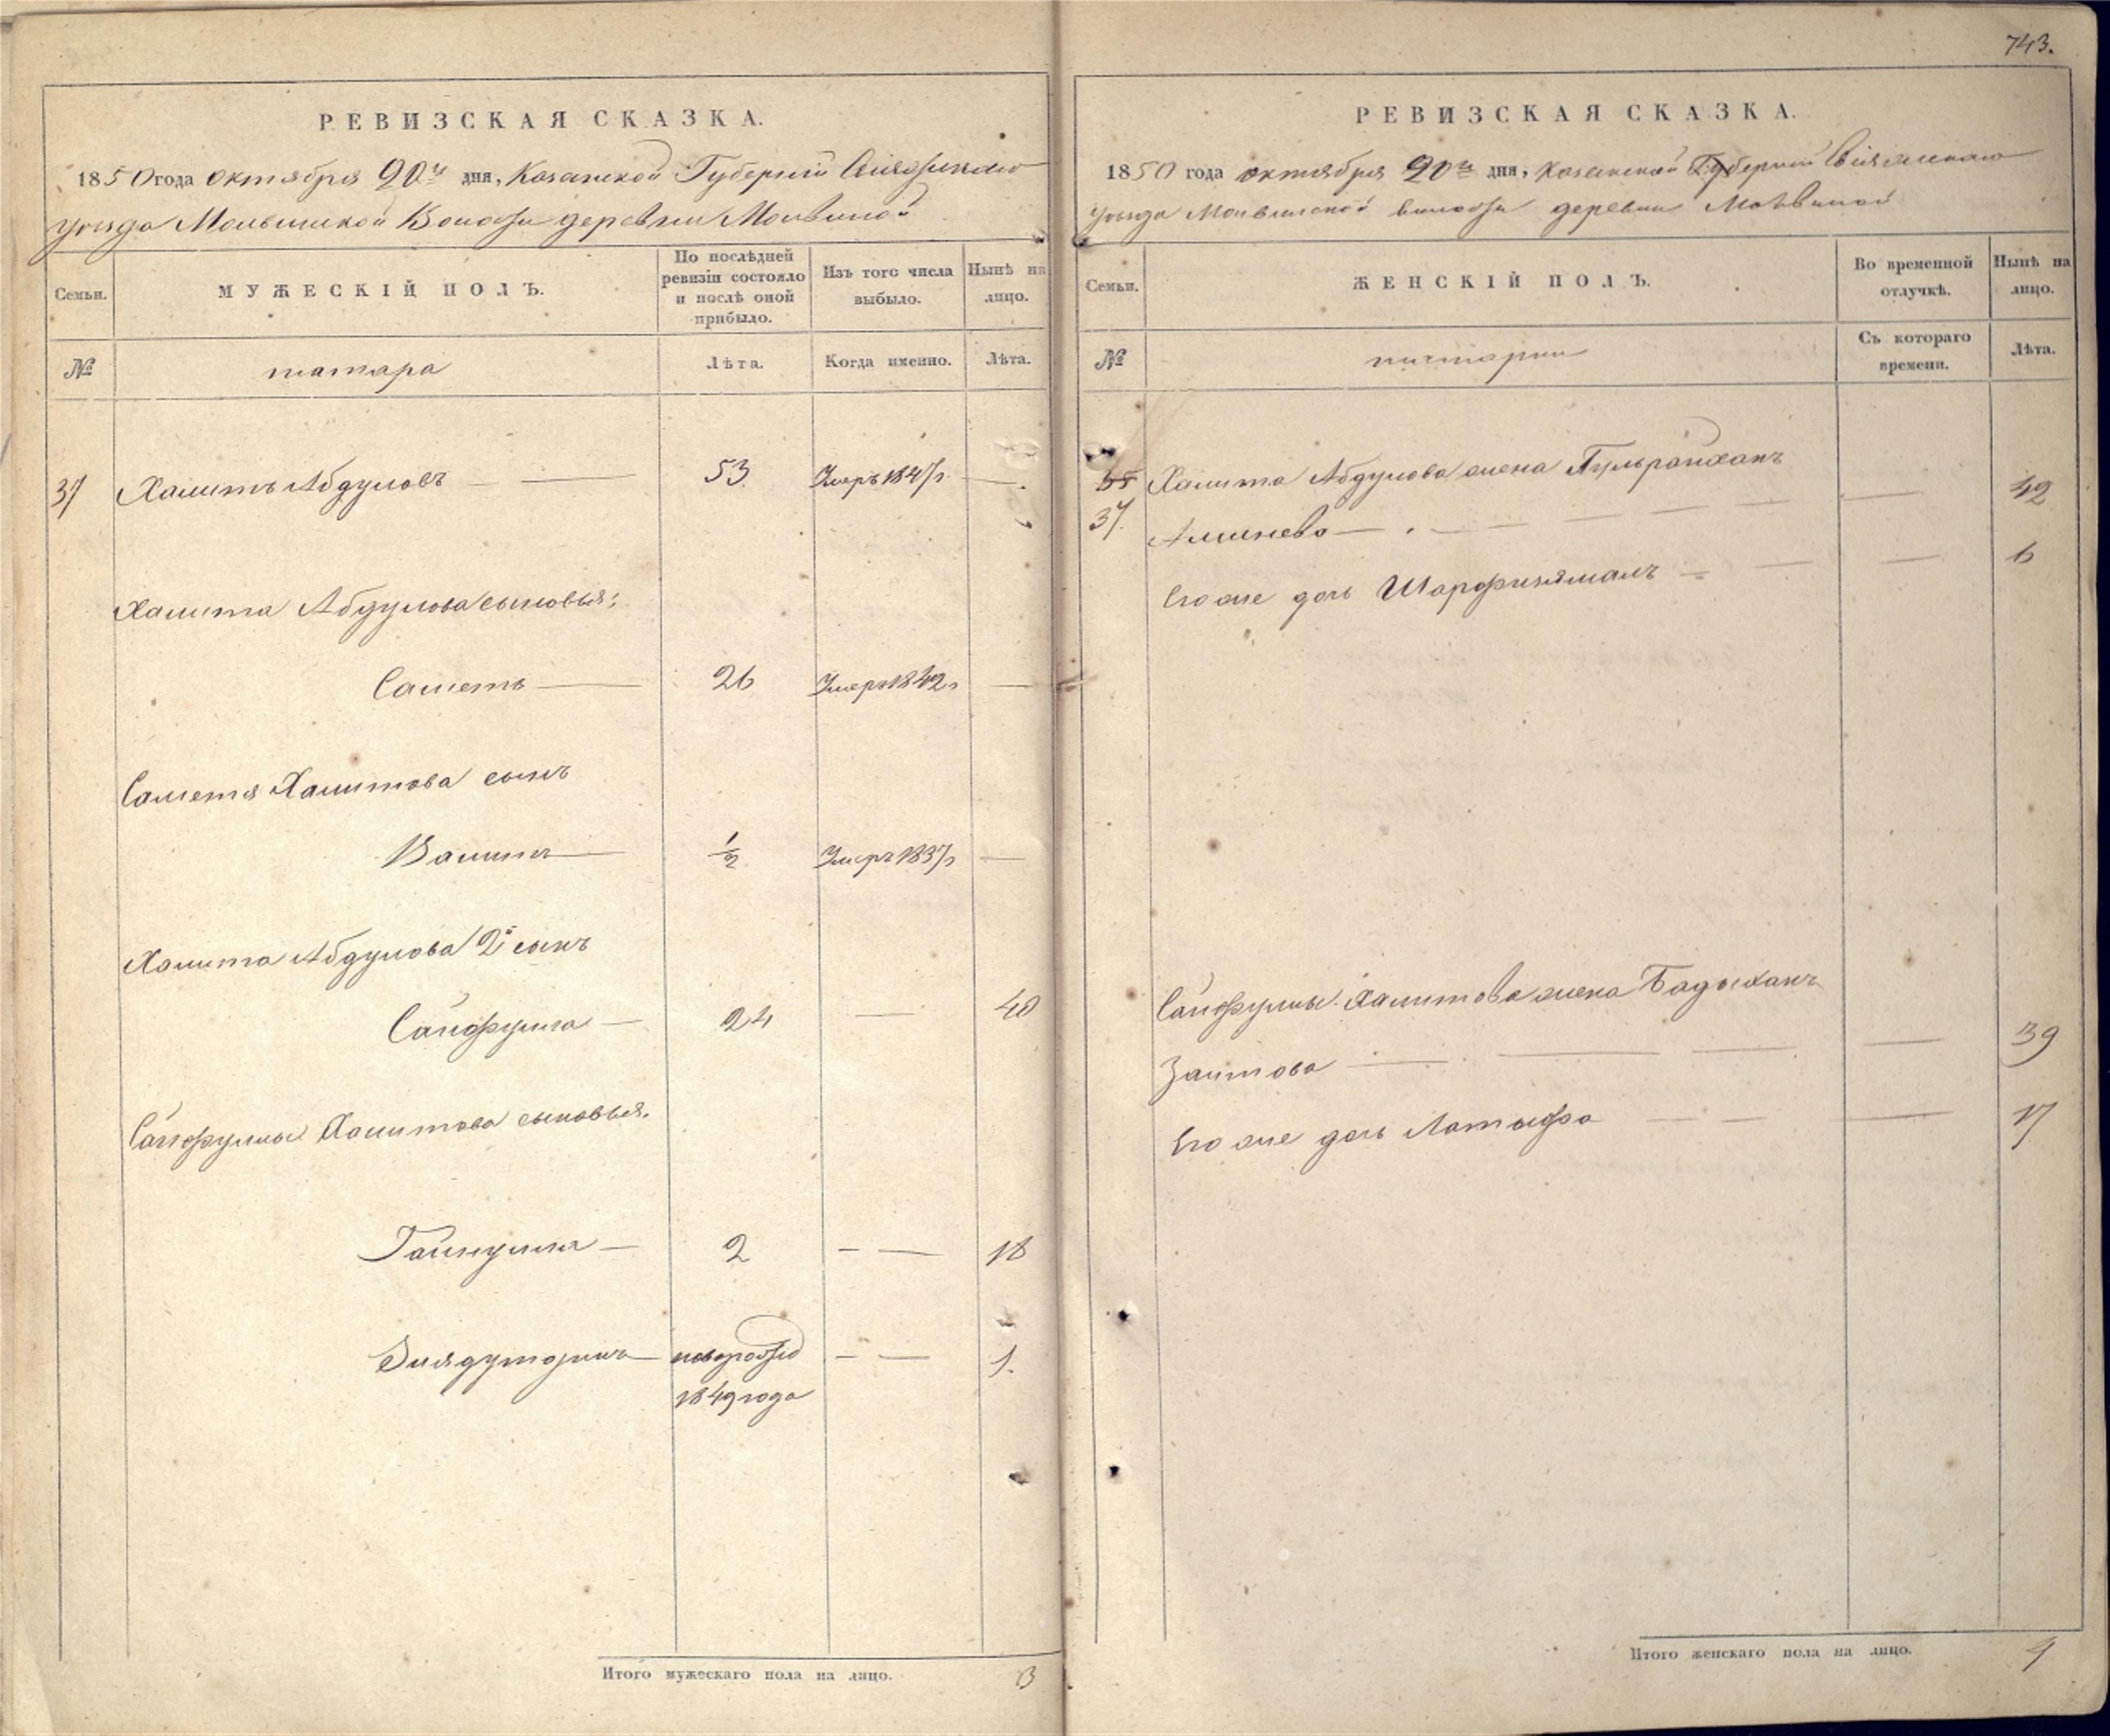 743.
РЕВИЗСКАЯ СКАЗКА.
1850 года октября 20го дня, Казанской Губернии Свияжскаго
уезда Молвинской Волости деревни Молвиной
Семьи.
МУЖЕСКІЙ ПОЛЪ.
По послѣдней ревизіи состояло и послѣ оной прибыло.
Изъ того числа выбыло.
Нынѣ на лицо.
№
татара
Лѣта.
Когда именно.
Лѣта.
37 Халитъ Абдуловъ — 53. Умеръ 1847г —
Халита Абдулова сыновья:
Саметъ — 26 Умеръ 1842г —
Саметя Халитова сынъ
Валитъ — 1/2 Умеръ 1837г —
Халита Абдулова 2й сынъ
Сайфулла — 24 — 40
Сайфуллы Халитова сыновья.
Гайнулла — 2 — — 18
Зиядутдинъ — новорожд — — 1.
1849 года
Итого мужескаго пола на лицо. 3
РЕВИЗСКАЯ СКАЗКА.
1850 года октября 20го дня, Казанской Губернии Свияжскаго
уезда Молвинской волости деревни Молвиной
Семьи.
ЖЕНСКІЙ ПОЛЪ.
Во временной отлучкѣ.
Нынѣ на лицо.
№
татарки
Съ котораго времени.
Лѣта.
35 Халита Абдулова жена Гульрайханъ
37. Алмиева — — — — — — 42
Его же дочь — — — 6
Сайфуллы Халитова жена Бадыханъ
Заитова — — — — 39
Его же дочь Латыфа — — — 17
Итого женскаго пола на лицо. 4